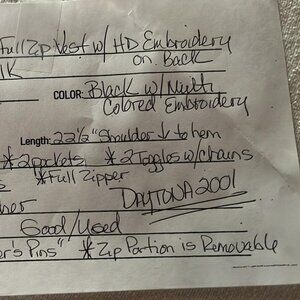 Full Zip Vest w/ HD Embroidery
on Back
COLOR: Black w/ Multi
Colored Embroidery
Length: 22½" Shoulder ↓ to hem
* 2 pockets * 2 Toggles w/ chains
* Full Zipper
DAYTONA 2001
Good/Used
er's Pins" * Zip Portion is Removable